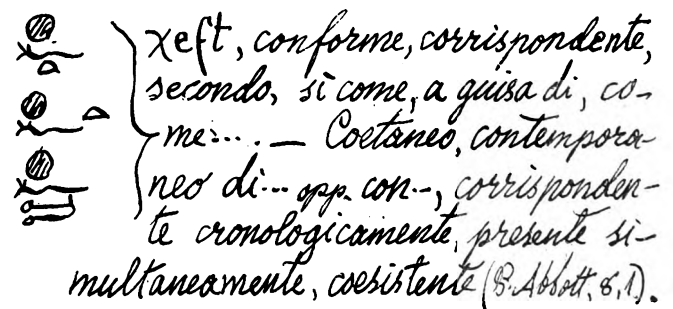 χeft, conforme, corrispondente,
secondo, sì come, a guisa di, co-
me.... — Coetaneo, contempora-
neo di... opp. con..., corrisponden-
te cronologicamente, presente si-
multaneamente, coesistente (P. Abbott, 8, 1).